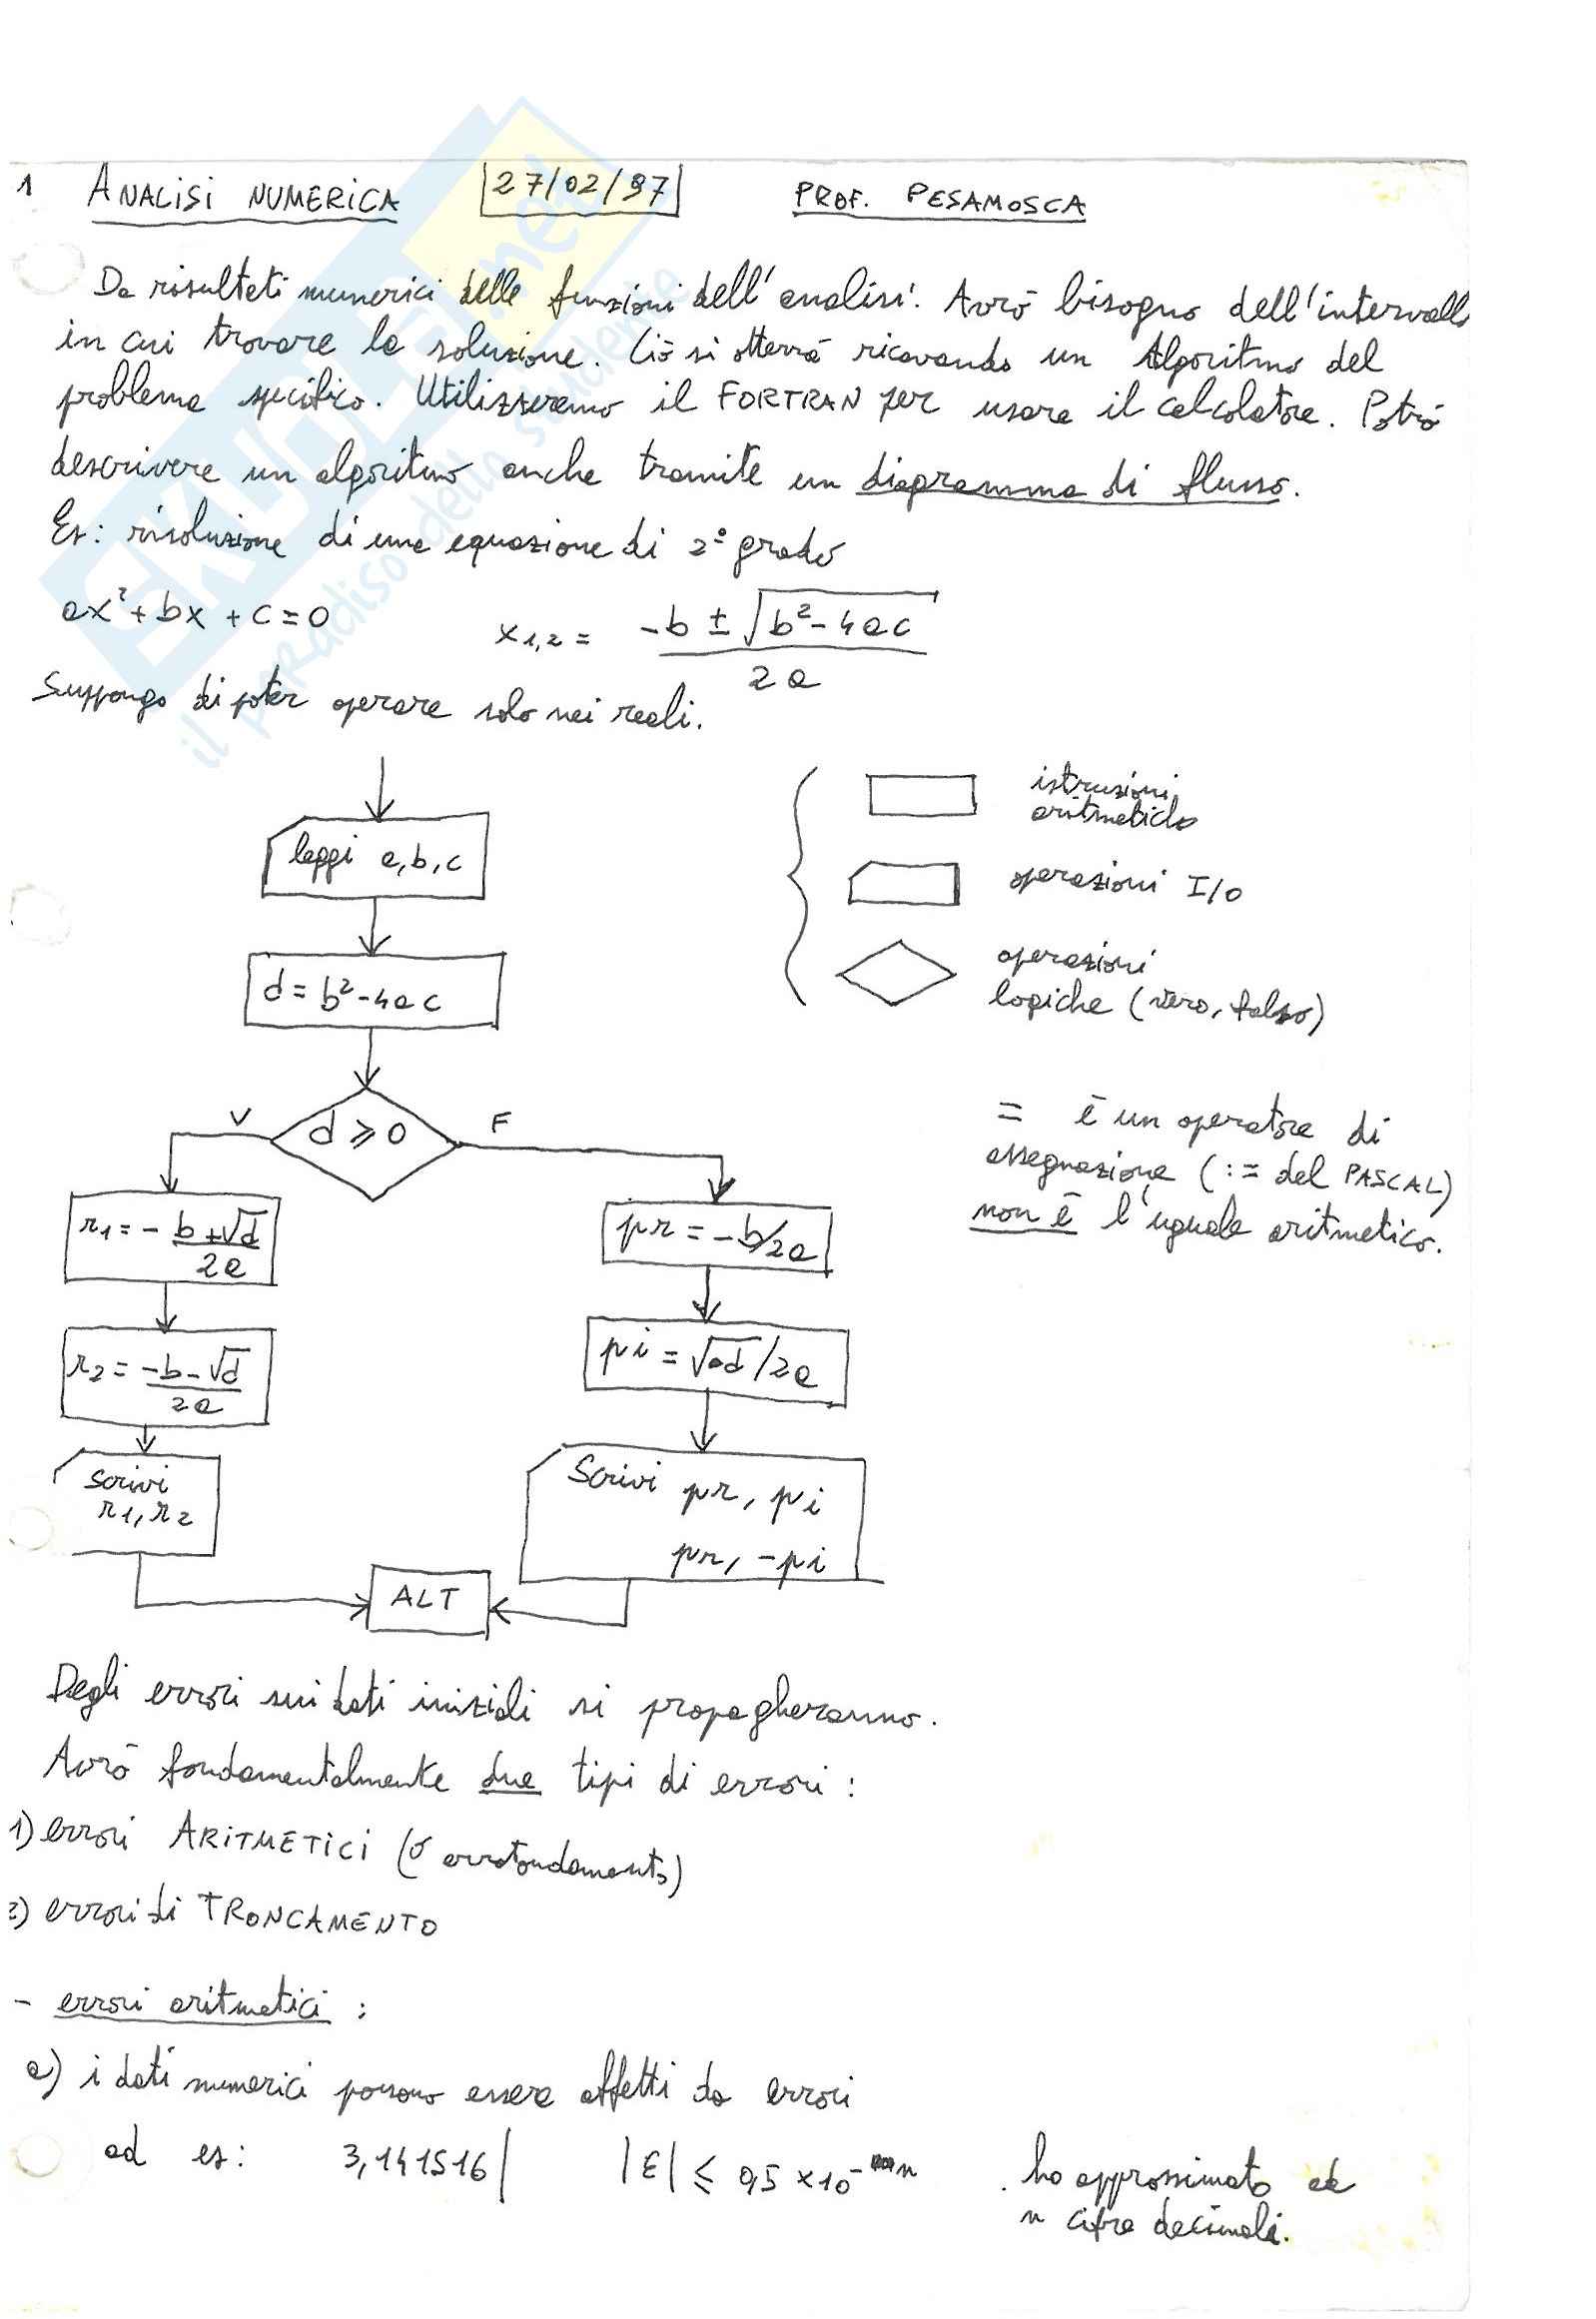 1 ANALISI NUMERICA 27/02/97 PROF. PESAMOSCA
Da risultati numerici delle funzioni dell'analisi. Avrò bisogno dell'intervallo
in cui trovare la soluzione. Ciò si otterrà ricavando un Algoritmo del
problema specifico. Utilizzeremo il FORTRAN per usare il calcolatore. Potrò
descrivere un algoritmo anche tramite un diagramma di flusso.
Es: risoluzione di una equazione di 2° grado
ax²+bx+c=0
x1,2 = -b ± √b²-4ac
2a
Suppongo di poter operare solo nei reali.
leggi a,b,c
d=b²-4ac
d ⩾ 0
V
F
r1 = - b+√d
2a
r2 = -b-√d
2a
scrivi
r1, r2
pr = -b/2a
pi = √-d/2a
Scrivi pr, pi
pr, -pi
ALT
istruzioni
aritmetiche
operazioni I/O
operazioni
logiche (vero, falso)
= è un operatore di
assegnazione (:= del PASCAL)
non è l'uguale aritmetico.
Degli errori sui dati iniziali si propagheranno.
Avrò fondamentalmente due tipi di errori:
1) errori ARITMETICI (o arrotondamento)
2) errori di TRONCAMENTO
- errori aritmetici:
a) i dati numerici possono essere affetti da errori
ad es: 3,141516| |ε| ≤ 0,5 x 10⁻ⁿ . ho approssimato a
n cifre decimali.
SKUOLA.net
il paradiso dello studente